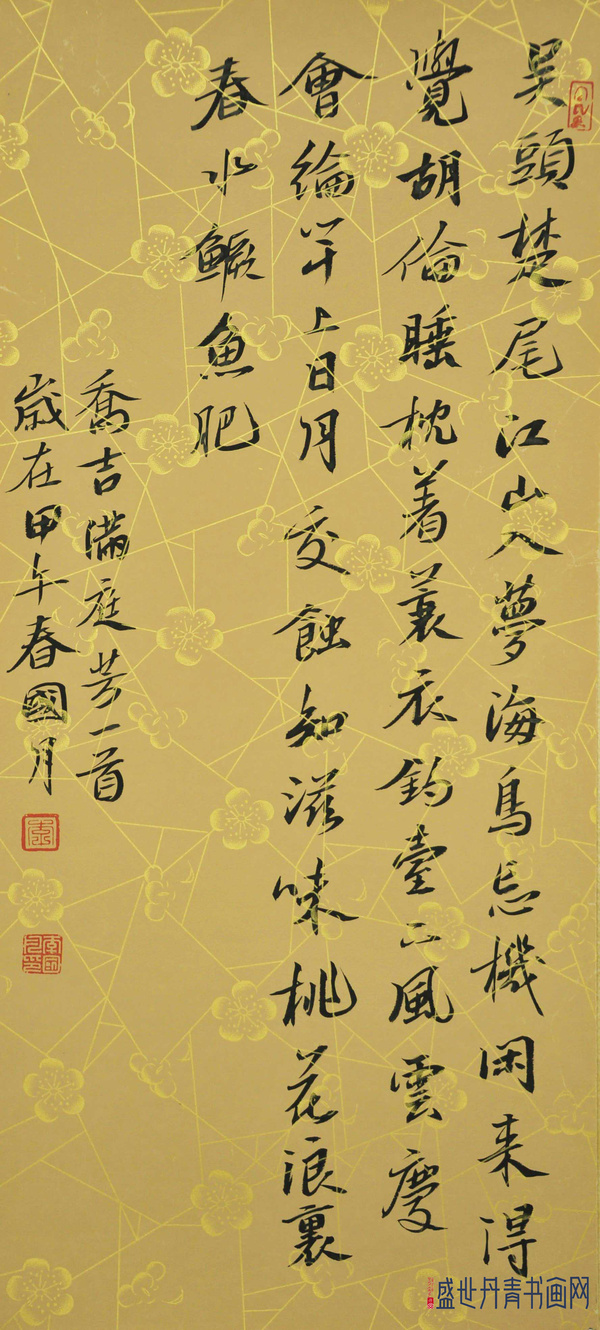 吴頭楚尾江山入夢海鳥忘機闲来得
覺胡倫睡枕着蓑衣钓臺下風雲慶
會綸竿上日月交蝕知滋味桃花浪裏
春水鳜魚肥
喬吉满庭芳一首
歲在甲午春國月
盛世丹青书画网